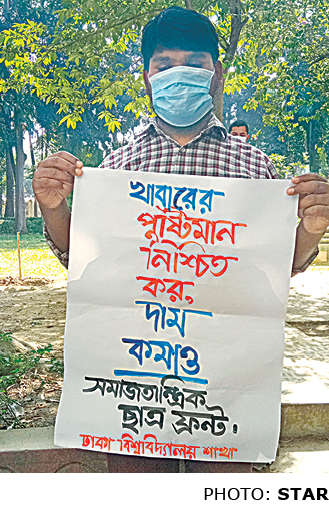 খাবারের
পুষ্টিমান
নিশ্চিত
কর,
দাম
কমাও
সমাজতান্ত্রিক
ছাত্র ফ্রন্ট।
ঢাকা বিশ্ববিদ্যালয় শাখা
PHOTO: STAR